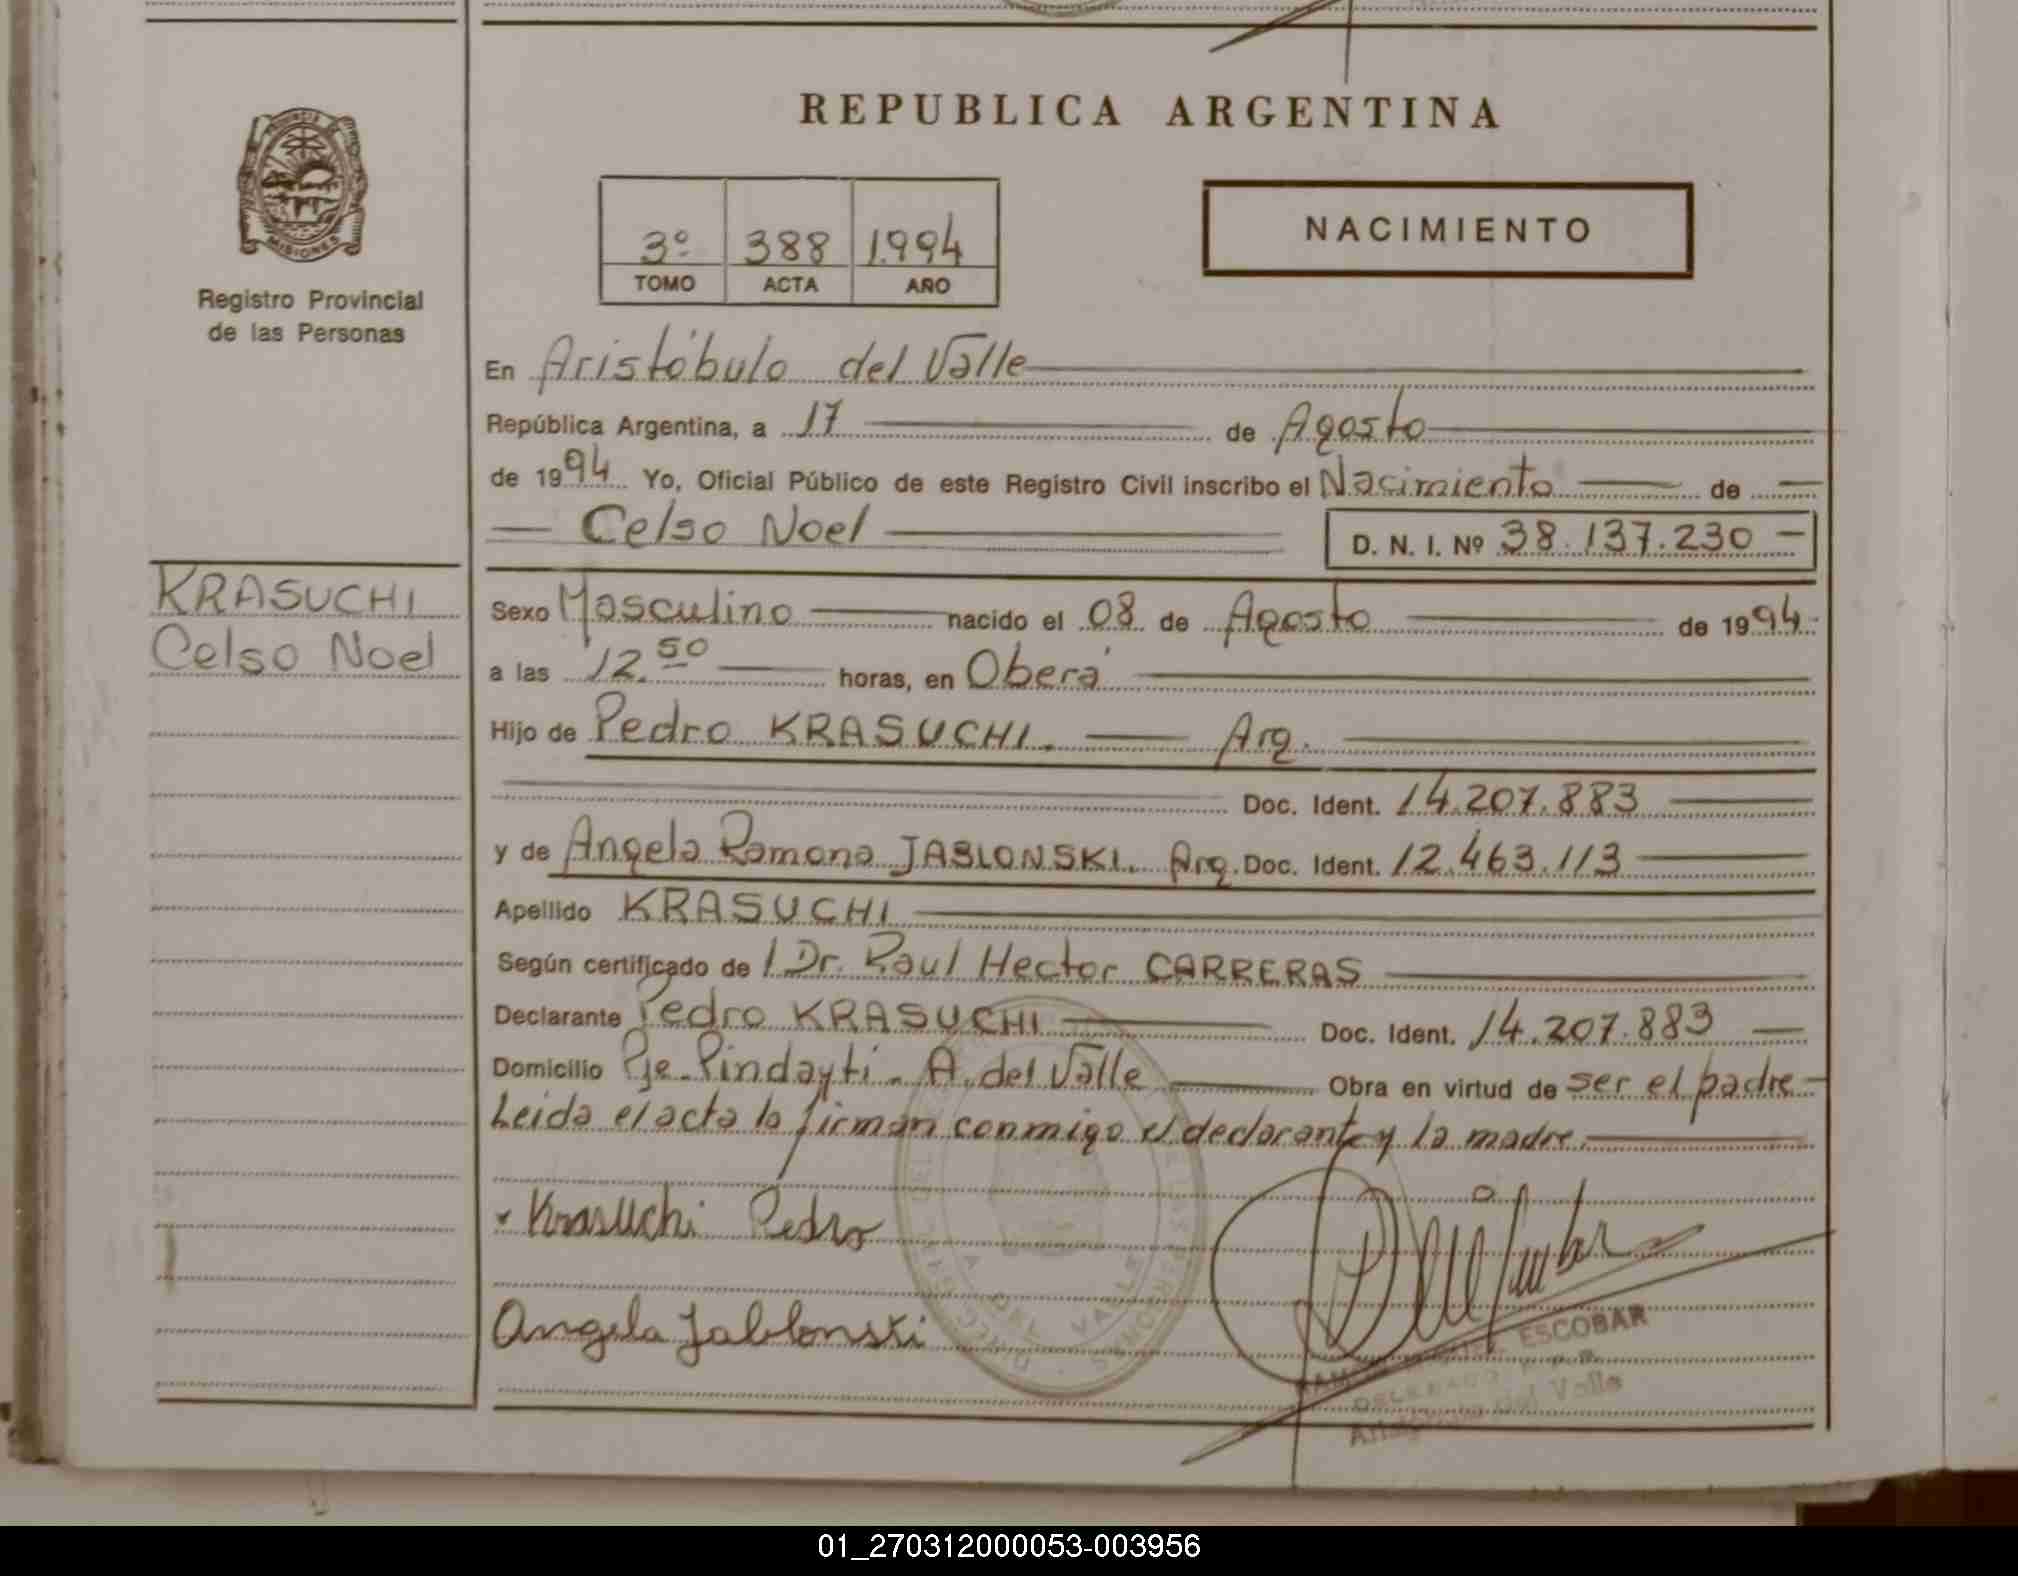 REPUBLICA ARGENTINA
PROVINCIA
MISIONES
Registro Provincial
de las Personas
3º 388 1994
TOMO ACTA AÑO
NACIMIENTO
En Aristóbulo del Valle
República Argentina, a 17 de Agosto
de 1994 Yo, Oficial Público de este Registro Civil inscribo el Nacimiento de
Celso Noel D. N. I. Nº 38.137.230
KRASUCHI
Celso Noel
Sexo Masculino nacido el 08 de Agosto de 1994
a las 12.50 horas, en Oberá
Hijo de Pedro KRASUCHI. Arg.
Doc. Ident. 14.207.883
y de Angela Ramona JABLONSKI. Arg. Doc. Ident. 12.463.113
Apellido KRASUCHI
Según certificado de l Dr. Raul Hector CARRERAS
Declarante Pedro KRASUCHI Doc. Ident. 14.207.883
Domicilio Pje. Pindayti - A. del Valle Obra en virtud de ser el padre
Leida el acta la firman conmigo el declarante y la madre.
Krasuchi Pedro
Angela Jablonski
ESCOBAR
DELEGADO
Aristóbulo del Valle
01_270312000053-003956